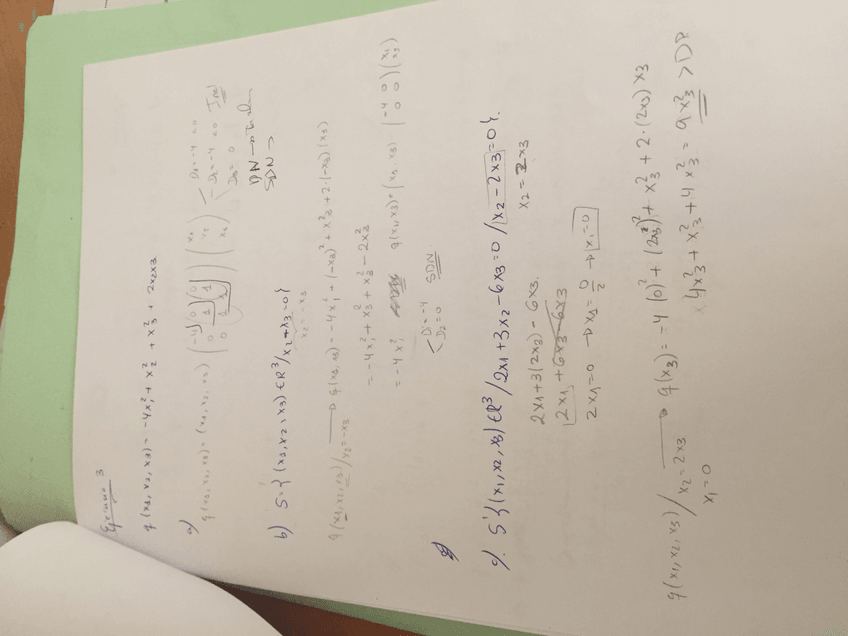 3
q (x1, x2, x3) = -4x1² + x2² + x3² + 2x2x3
a)
q(x1, x2, x3) = (x1, x2, x3) (-4 0 0 / 0 1 1 / 0 1 1) (x1 x2 x3) < D1 = -4 <0
D2 = -4 <0
D3 = 0
DN →
SDN →
b) S = { (x1, x2, x3) ∈ R³ / x2 + x3 = 0 }
x2 = -x3
q (x1, x2, x3) / x2 = -x3 → q(x1, x3) = -4x1² + (-x3)² + x3² + 2·(-x3)(x3)
= -4x1² + x3² + x3² - 2x3²
= -4x1² q(x1, x3) = (x1, x3) (-4 0 / 0 0) (x1 x3)
< D1 = -4 SDN.
D2 = 0
c). S' { (x1, x2, x3) ∈ R³ / 2x1 + 3x2 - 6x3 = 0 / x2 - 2x3 = 0 }.
x2 = 2x3
2x1 + 3(2x3) - 6x3.
2x1 + 6x3 - 6x3
2x1 = 0 → x1 = 0/2 → x1 = 0
q(x1, x2, x3) / x2 = 2x3 → q(x3) = -4 (0)² + (2x3)² + x3² + 2·(2x3) x3
x1 = 0
4x3² + x3² + 4x3² = 9x3² > DP